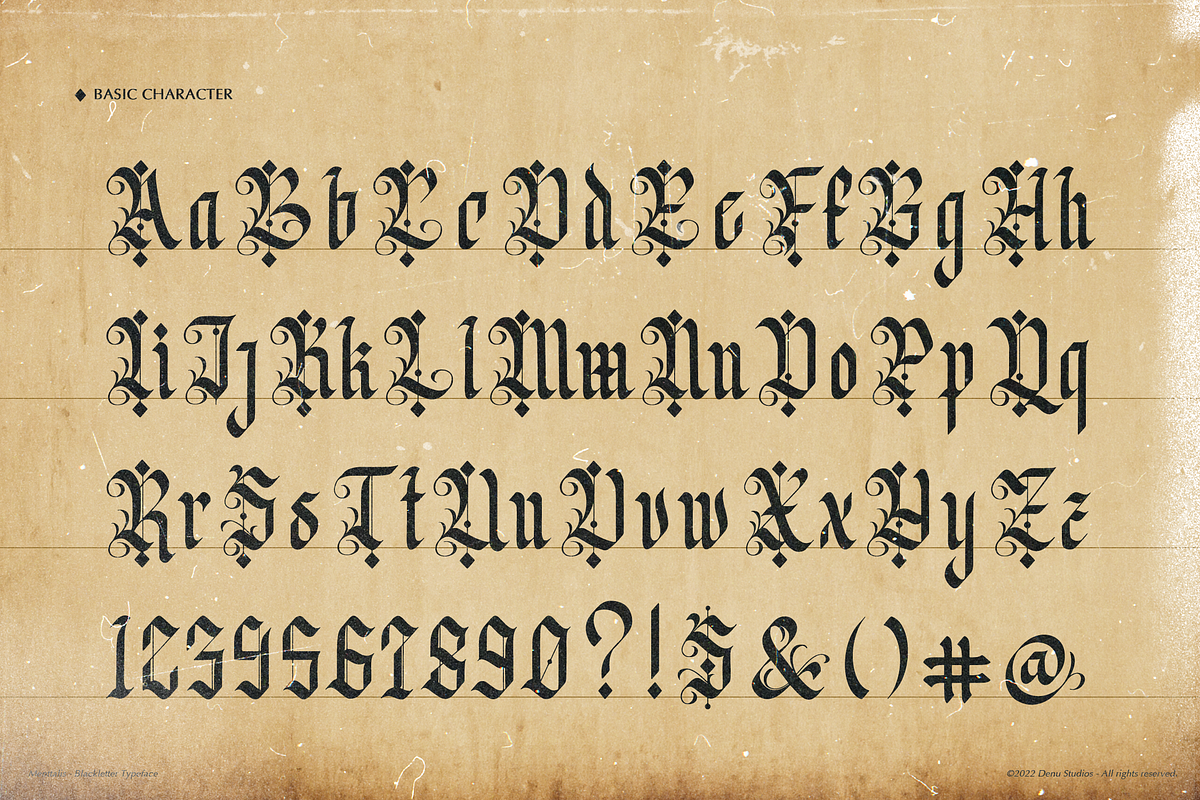 BASIC CHARACTER
Aa Bb Cc Dd Ee Ff Gg Hh
Ii Jj Kk Ll Mm Nn Oo Pp Qq
Rr Ss Tt Uu Vv w Xx Yy Zz
1234567890?!$&()#@
- Blackletter Typeface
©2022 Denu Studios - All rights reserved.